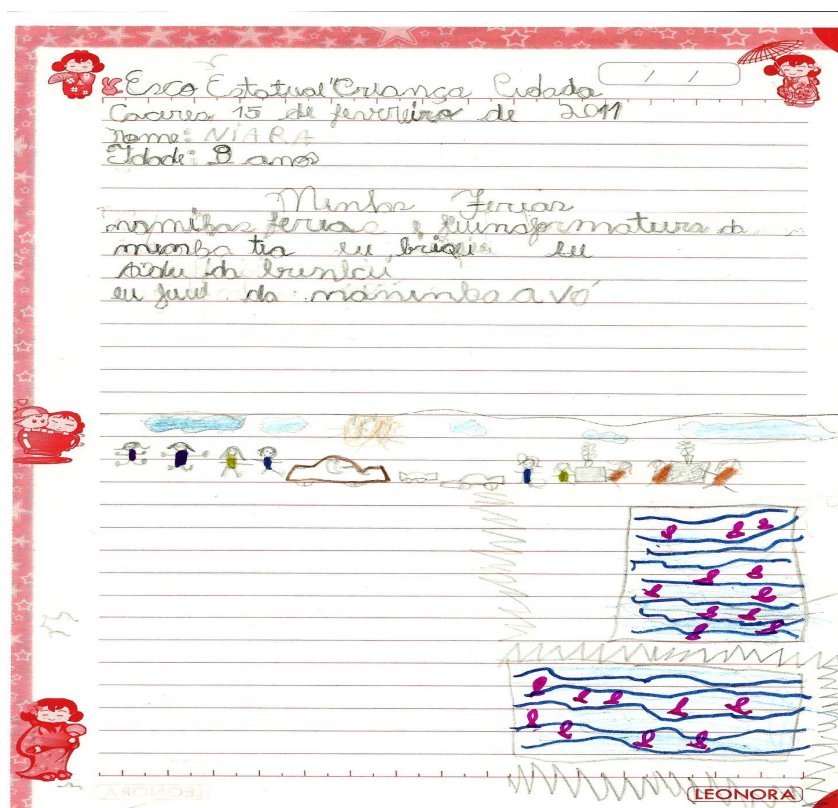 Esco Estatual "Criança Cidada
Caceres 15 de fevereiro de 2011
Nome: NIARA
Idade: 9 anos
Minhas Ferias
naminhas ferias e fuinaformatura da
minha tia eu briquei eu
eu fui da naminha avó
LEONORA